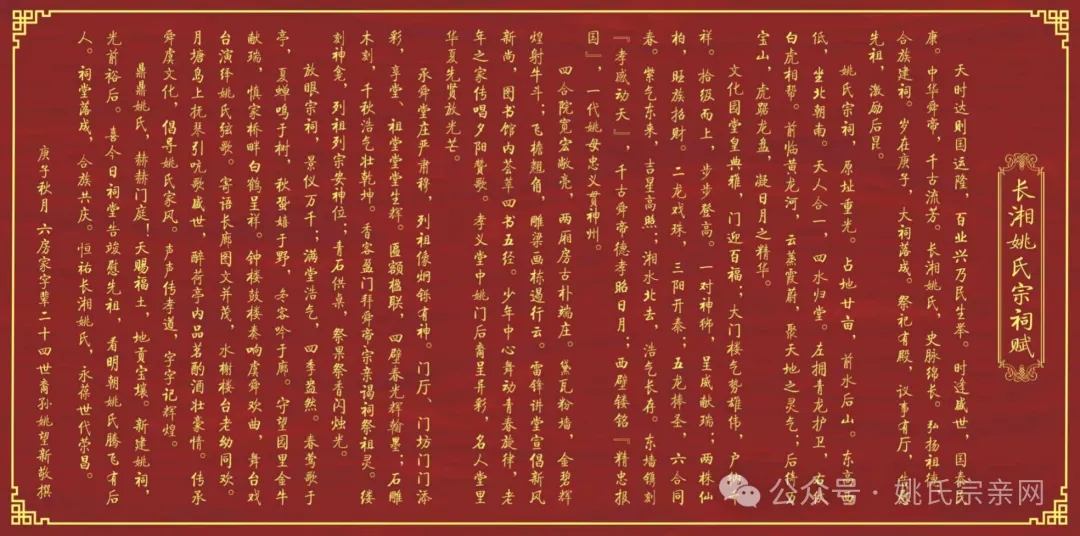 长湘姚氏宗祠赋
天时达则国运隆，百业兴乃民生举。时逢盛世，国泰民
康。中华舜帝，千古流芳。长湘姚氏，史脉绵长。弘扬祖德
合族建祠。岁在庚子，大祠落成。祭祀有殿，议事有厅，告慰
先祖，激励后昆。
姚氏宗祠，原址重光。占地廿亩，前水后山。东高西
低，坐北朝南。天人合一，四水归堂。左拥青龙护卫，右威
白虎相帮。前临黄龙河，云蒸霞蔚，聚天地之灵气；后
宝山，虎踞龙盘，凝日月之精华。
文化园堂皇典雅，门迎百福；大门楼气势雄伟，户纳
祥。拾级而上，步步登高。一对神狮，呈威献瑞；两株仙
柏，旺族招财。二龙戏珠，三阳开泰；五龙捧圣，六合同
春。紫气东来，吉星高照；湘水北去，浩气长存。东墙镌刻
『孝感动天』，千古舜帝德孝昭日月；西壁镂铭『精忠报
国』，一代姚母忠义贯神州。
四合院宽宏敞亮，两厢房古朴端庄。黛瓦粉墙，金碧辉
煌射牛斗；飞檐翘角，雕梁画栋遏行云。雷锋讲堂宣倡新风
新尚，图书馆内荟萃四书五经。少年中心舞动青春旋律，老
年之家传唱夕阳赞歌。孝义堂中姚门后裔呈异彩，名人堂里
华夏先贤放光芒。
承舜堂庄严肃穆，列祖像炯铄有神。门厅、门坊门门添
彩，享堂、祖堂堂堂生辉。匾额楹联，四壁春光辉翰墨；石雕
木刻，千秋浩气壮乾坤。香客盈门拜舜帝，宗亲谒祠祭祖灵。缕
刻神龛，列祖列宗安神位；青石供桌，祭果祭香闪烛光。
放眼宗祠，景仪万千；满堂浩气，四季盎然。春莺歌于
亭，夏蝉鸣于树，秋蛩嬉于野，冬客吟于廊。守望园里金牛
献瑞，慎家桥畔白鹤呈祥。钟楼鼓楼奏响虞舜欢曲，舞台戏
台演绎姚氏弦歌。寄语长廊图文并茂，水榭楼台老幼同欢。
月塘岛上抚琴引吭歌盛世，醉荷亭内品茗酌酒壮豪情。传承
舜虞文化，倡导姚氏家风。声声传孝道，字字记辉煌。
鼎鼎姚氏，赫赫门庭！天赐福土，地贡宝壤。新建姚祠，
光前裕后。喜今日祠堂告竣慰先祖，看明朝姚氏腾飞有后
人。祠堂落成，合族共庆。恒祐长湘姚氏，永葆世代荣昌。
庚子秋月 六房家字辈二十四世裔孙姚望新敬撰
公众号·姚氏宗亲网